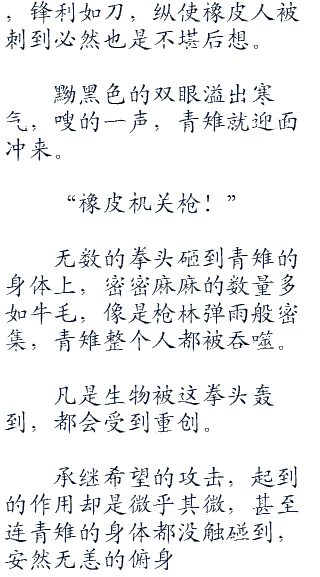 ，锋利如刀，纵使橡皮人被
刺到必然也是不堪后想。
黝黑色的双眼溢出寒
气，嗖的一声，青雉就迎面
冲来。
“橡皮机关枪！”
无数的拳头砸到青雉的
身体上，密密麻麻的数量多
如牛毛，像是枪林弹雨般密
集，青雉整个人都被吞噬。
凡是生物被这拳头轰
到，都会受到重创。
承继希望的攻击，起到
的作用却是微乎其微，甚至
连青雉的身体都没触碰到，
安然无恙的俯身